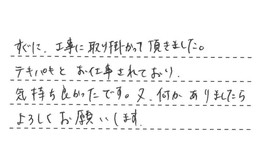 すぐに、工事に取り掛かって頂きました。
テキパキと お仕事されており、
気持ち良かったです。又、何かありましたら
よろしくお願いします。